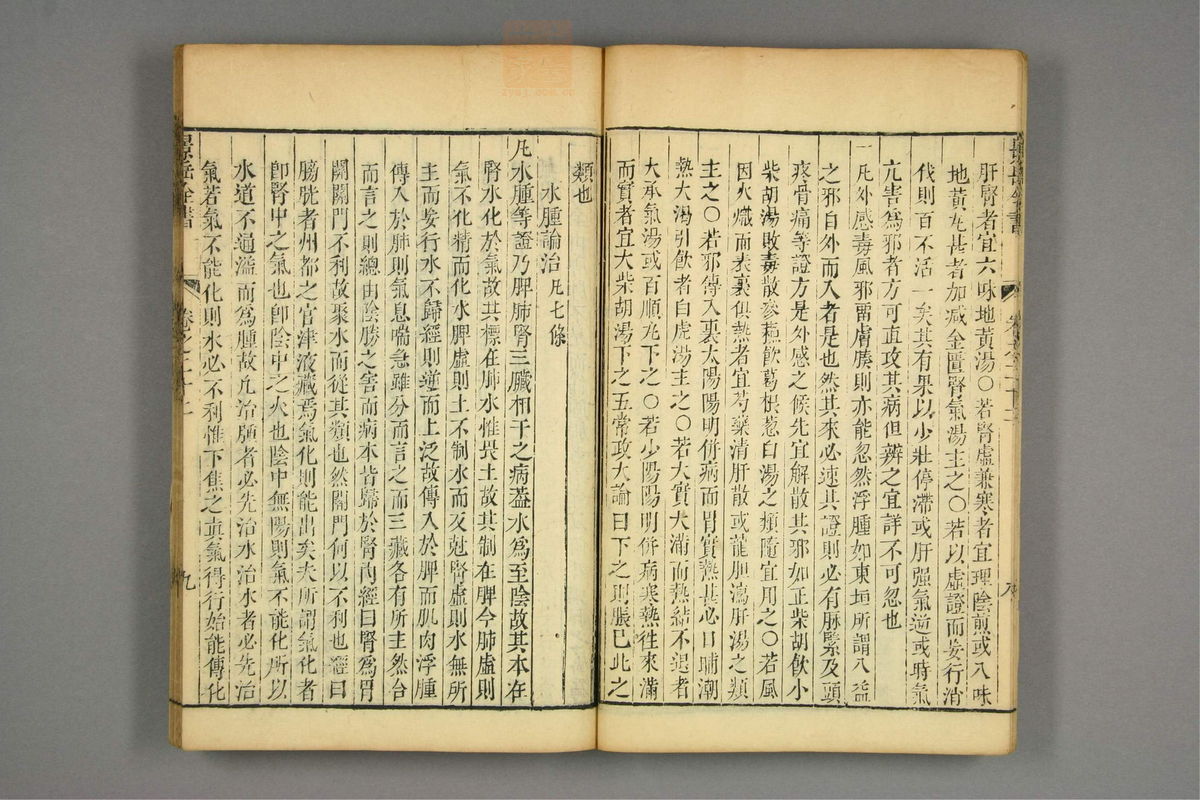 肝腎者宜六味地黃湯〇若腎虛兼寒者宜理陰煎或八味
地黃丸甚者加减金匱腎氣湯主之〇若以虛證而妄行消
伐則百不活一矣其有果以少壯停滯或肝强氣逆或時氣
亢害爲邪者方可直攻其病但辨之宜詳不可忽也
一凡外感毒風邪畱膚腠則亦能忽然浮腫如東垣所謂八益
之邪自外而入者是也然其來必速其證則必有脉緊及頭
疼骨痛等證方是外感之候先宜解散其邪如正柴胡飲小
柴胡湯敗毒散參蘇飲葛根葱白湯之類隨宜用之〇若風
因火熾而表裏俱熱者宜芍藥清肝散或龍胆瀉肝湯之類
主之〇若邪傳入裏太陽陽明併病而胃實熱甚必日晡潮
熱大渴引飲者白虎湯主之〇若大實大滿而熱結不退者
大承氣湯或百順丸下之〇若少陽陽明併病寒熱徃來滿
而實者宜大柴胡湯下之五常政大論曰下之則脹已此之
類也
水腫論治 凡七條
凡水腫等證乃脾肺腎三臟相干之病葢水爲至陰故其本在
腎水化於氣故其標在肺水惟畏土故其制在脾今肺虛則
氣不化精而化水脾虛則土不制水而反尅腎虛則水無所
主而妄行水不歸經則逆而上泛故傳入於脾而肌肉浮腫
傳入於肺則氣息喘急雖分而言之而三臟各有所主然合
而言之則總由陰勝之害而病本皆歸於腎內經曰腎爲胃
關關門不利故聚水而從其類也然關門何以不利也經曰
膀胱者州都之官津液藏焉氣化則能出矣夫所謂氣化者
卽腎中之氣也卽陰中之火也陰中無陽則氣不能化所以
水道不通溢而爲腫故凡治腫者必先治水治水者必先治
氣若氣不能化則水必不利惟下焦之眞氣得行始能傳化
景岳全書
卷之二十二
九